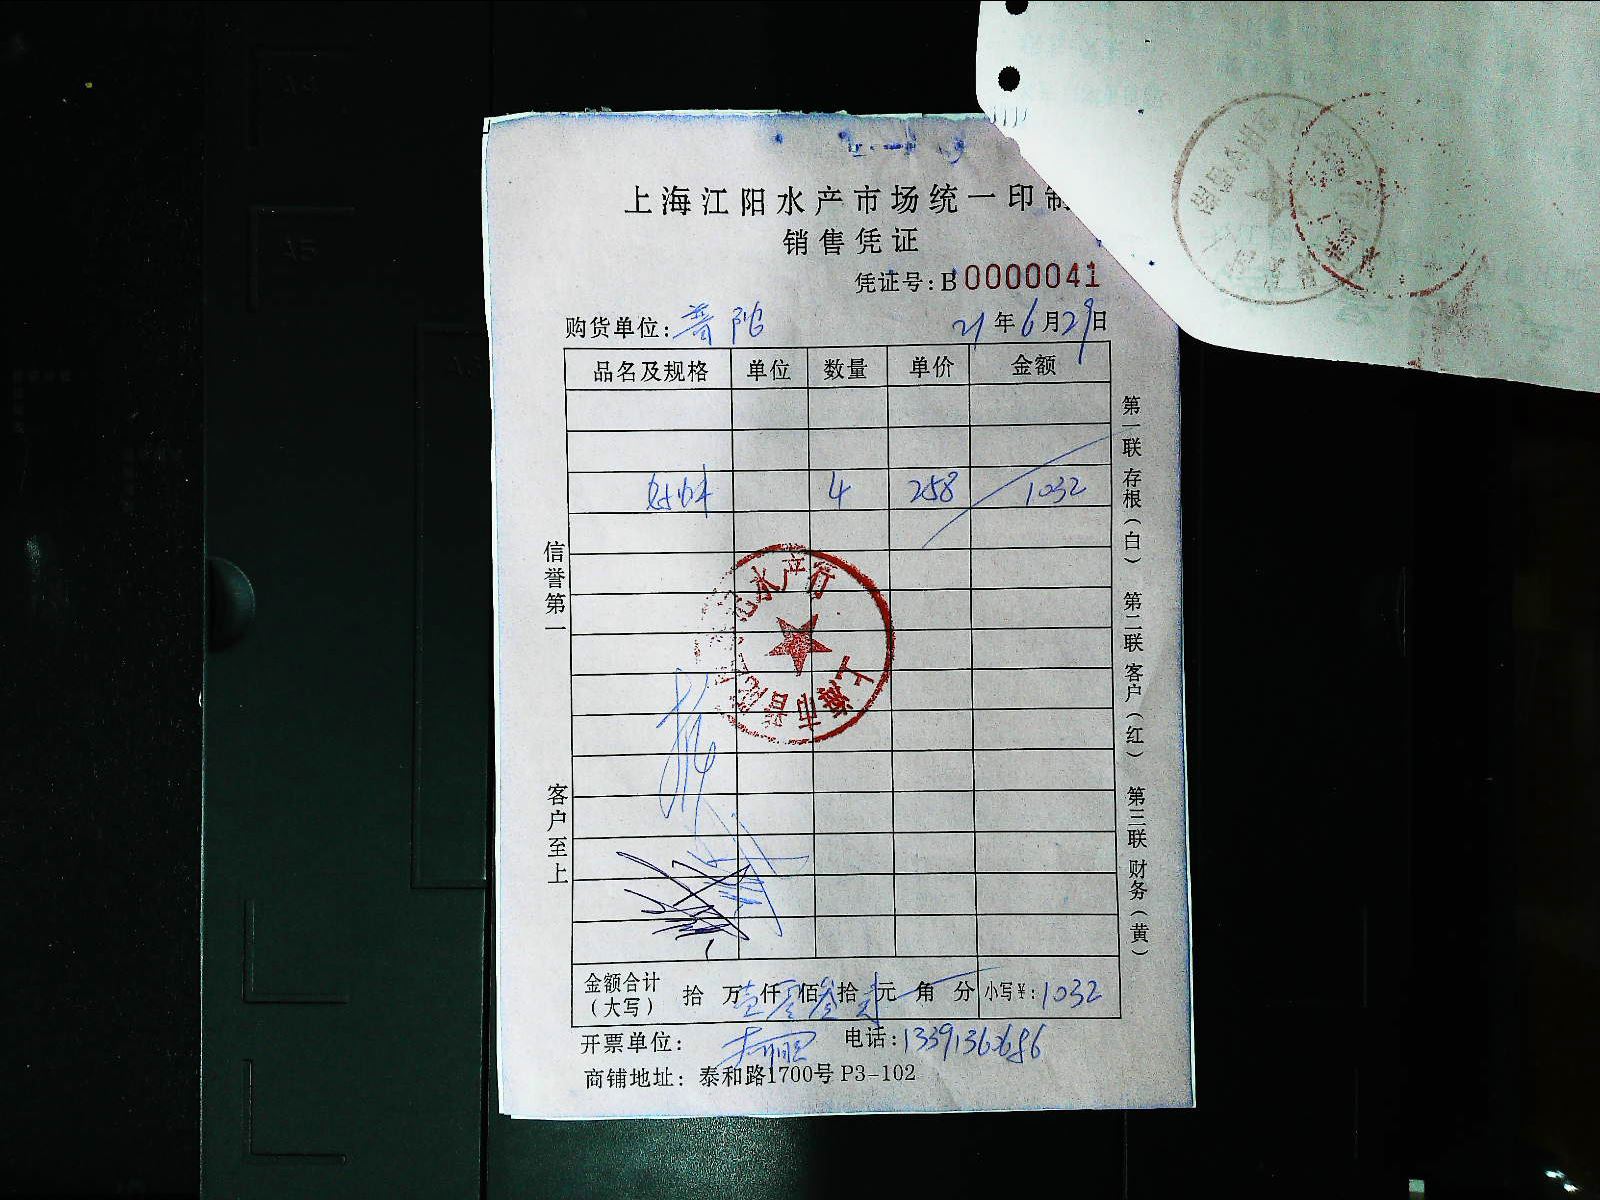 上海江阳水产市场统一印制
销售凭证
凭证号：B0000041
购货单位：普陀 21年6月29日
品名及规格 单位 数量 单价 金额
4 258 1032
水产行
上海市普陀
信誉第一
客户至上
第一联 存根（白） 第二联 客户（红） 第三联 财务（黄）
金额合计（大写） 拾 万壹仟零佰叁拾贰元 角 分 小写￥：1032
开票单位： 电话：13391360686
商铺地址：泰和路1700号P3-102